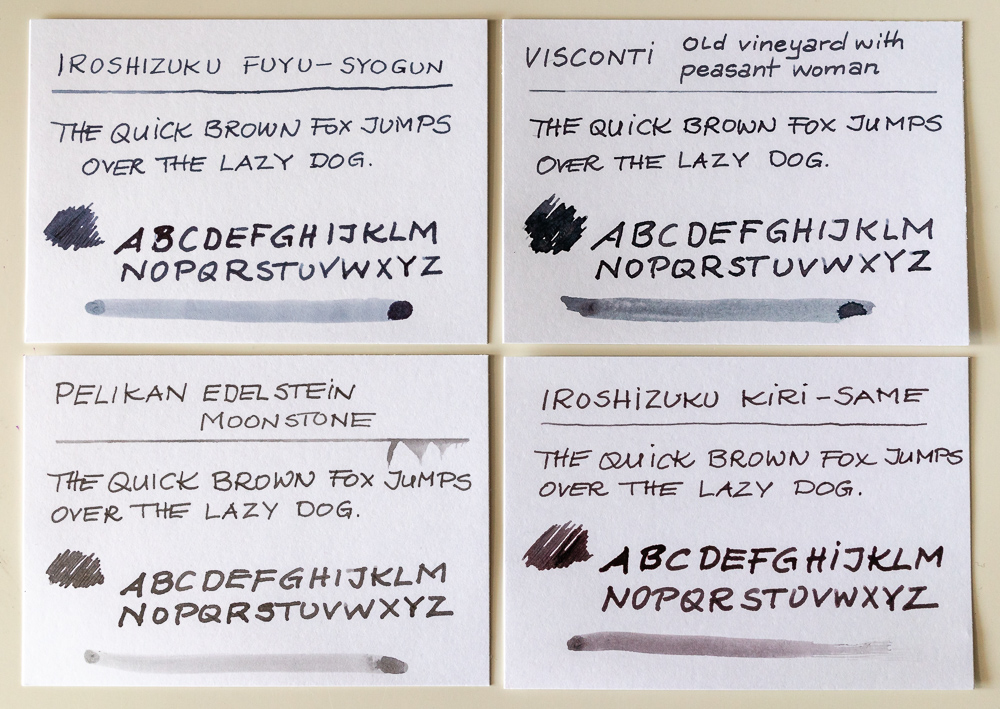 IROSHIZUKU FUYU-SYOGUN
THE QUICK BROWN FOX JUMPS
OVER THE LAZY DOG.
ABCDEFGHIJKLM
NOPQRSTUVWXYZ
VISCONTI old vineyard with
peasant woman
THE QUICK BROWN FOX JUMPS
OVER THE LAZY DOG.
ABCDEFGHIJKLM
NOPQRSTUVWXYZ
PELIKAN EDELSTEIN
MOONSTONE
THE QUICK BROWN FOX JUMPS
OVER THE LAZY DOG.
ABCDEFGHIJKLM
NOPQRSTUVWXYZ
IROSHIZUKU KIRI-SAME
THE QUICK BROWN FOX JUMPS
OVER THE LAZY DOG.
ABCDEFGHIJKLM
NOPQRSTUVWXYZ